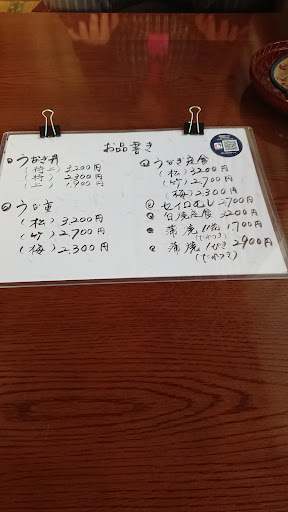 お品書き
うなぎ丼
(特上) 3200円
(特) 2,300円
(上) 1,900円
うな重
(松) 3200円
(竹) 2,700円
(梅) 2,300円
うなぎ定食
(松) 3200円
(竹) 2,700円
(梅) 2,300円
セイロむし 2700円
白焼定食 3200円
蒲焼 1700円
蒲焼 1ぴき 2900円